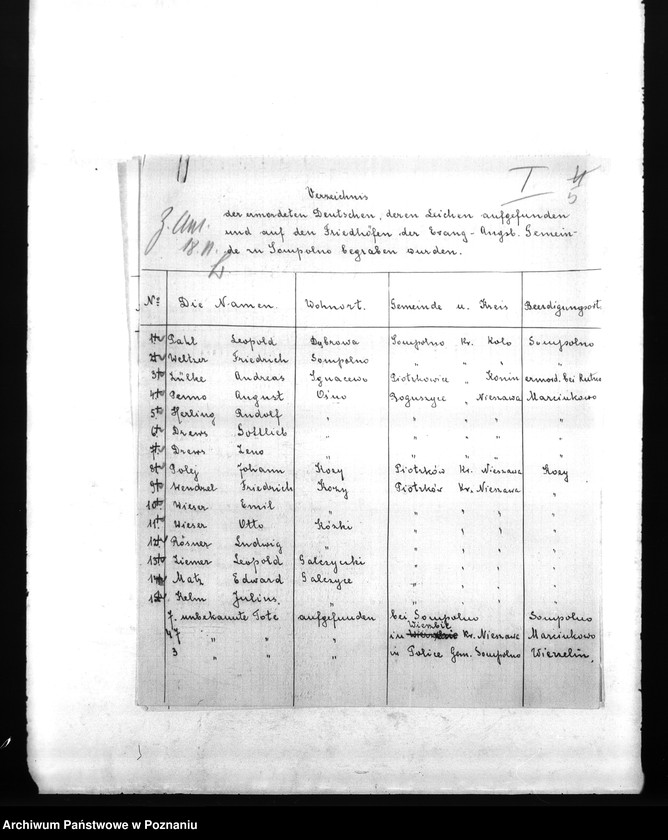 I 4
5
Verzeichnis
der ermordeten Deutschen, deren Leichen aufgefunden
und auf den Friedhöfen der Evang-Augsb. Gemein-
de zu Sompolno begraben wurden.
Z. Anl.
18. 11.
No Die Namen. Wohnort. Gemeinde u. Kreis Beerdigungsort
1 Pahl Leopold Dąbrowa Sompolno Kr. Koło Sompolno
2 Weltzer Friedrich Sompolno " " " "
3 Zülke Andreas Ignacewo Piotrkowice " Konin ermord. bei Kutno
4 Penno August Ośno Boguszyce " Nieszawa Marcinkowo
5 Herling Rudolf " " " " "
6 Drews Gottlieb " " " " "
7 Drews Zeno " " " " "
8 Polej Johann Kozy Piotrków Kr. Nieszawa Kozy
9 Wendzel Friedrich Kozy Piotrków Kr. Nieszawa "
10 Wieser Emil " " " " "
11 Wieser Otto Kózki " " " "
12 Rösner Ludwig " " " " "
13 Ziemer Leopold Galczycki " " " "
14 Matz Edward Galczyce " " " "
15 Kelm Julius. " " " " "
7. unbekannte Tote aufgefunden bei Sompolno Sompolno
47 " " " in Wierzbie Kr. Nieszawa Marcinkowo
3 " " " in Police Gem. Sompolno Wierzelin.
Archiwum Państwowe w Poznaniu